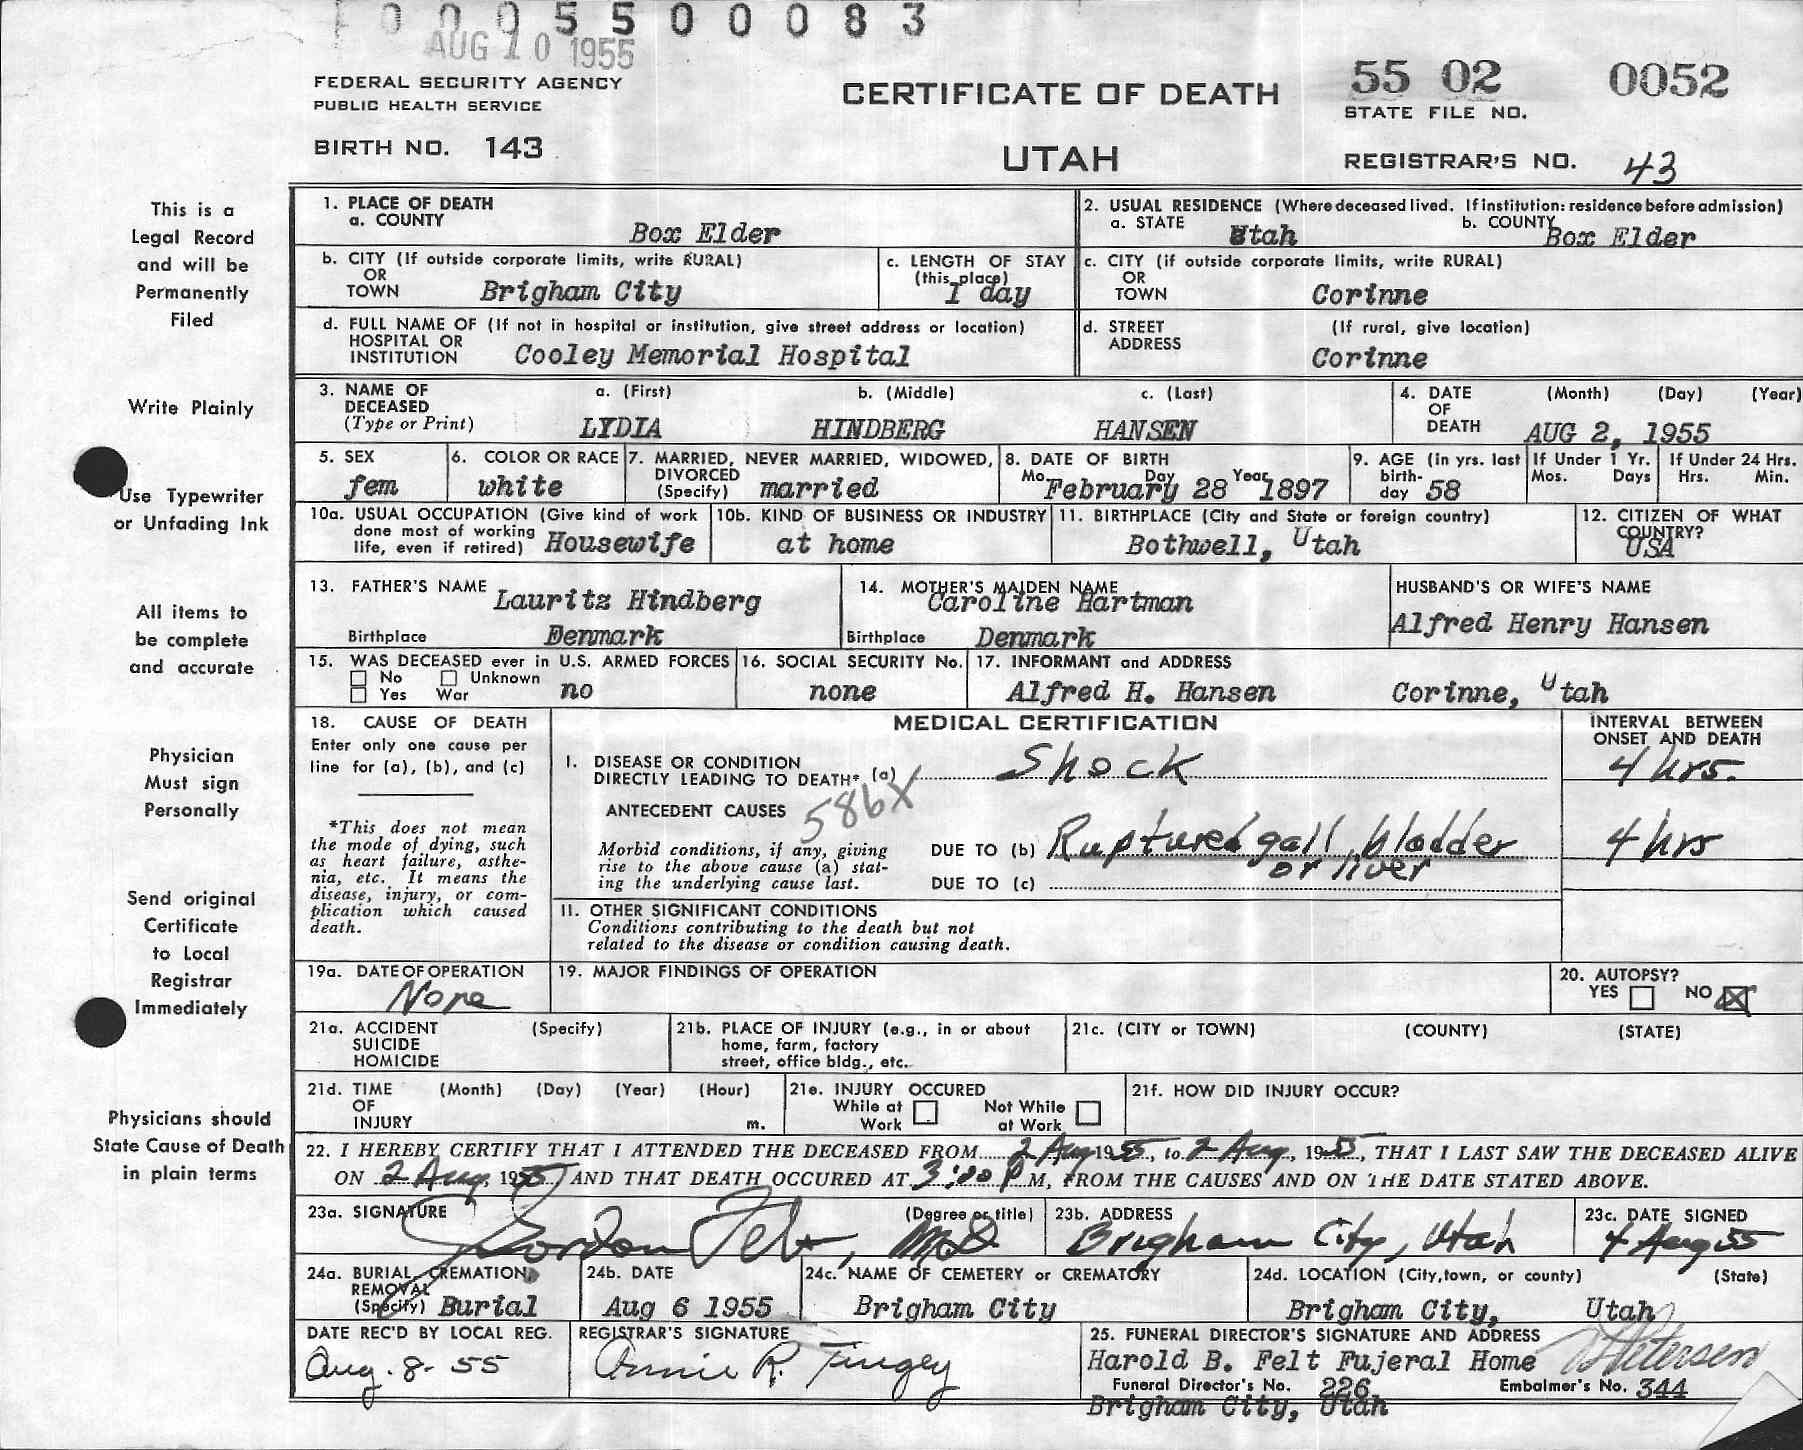 0 0 0 5 5 0 0 0 8 3
AUG 10 1955
FEDERAL SECURITY AGENCY
PUBLIC HEALTH SERVICE
BIRTH NO. 143
CERTIFICATE OF DEATH
UTAH
55 02 0052
STATE FILE NO.
REGISTRAR'S NO. 43
This is a
Legal Record
and will be
Permanently
Filed
Write Plainly
Use Typewriter
or Unfading Ink
All items to
be complete
and accurate
Physician
Must sign
Personally
Send original
Certificate
to Local
Registrar
Immediately
Physicians should
State Cause of Death
in plain terms
1. PLACE OF DEATH
a. COUNTY
Box Elder
2. USUAL RESIDENCE (Where deceased lived. If institution: residence before admission)
a. STATE Utah b. COUNTY Box Elder
b. CITY (If outside corporate limits, write RURAL)
OR
TOWN Brigham City
c. LENGTH OF STAY
(this place)
1 day
c. CITY (if outside corporate limits, write RURAL)
OR
TOWN Corinne
d. FULL NAME OF (If not in hospital or institution, give street address or location)
HOSPITAL OR
INSTITUTION Cooley Memorial Hospital
d. STREET (If rural, give location)
ADDRESS
Corinne
3. NAME OF a. (First) b. (Middle) c. (Last)
DECEASED
(Type or Print) LYDIA HINDBERG HANSEN
4. DATE (Month) (Day) (Year)
OF
DEATH AUG 2, 1955
5. SEX
fem
6. COLOR OR RACE
white
7. MARRIED, NEVER MARRIED, WIDOWED,
DIVORCED
(Specify) married
8. DATE OF BIRTH
Mo. Day Year
February 28 1897
9. AGE (in yrs. last
birth-
day 58
If Under 1 Yr.
Mos. Days
If Under 24 Hrs.
Hrs. Min.
10a. USUAL OCCUPATION (Give kind of work
done most of working
life, even if retired) Housewife
10b. KIND OF BUSINESS OR INDUSTRY
at home
11. BIRTHPLACE (City and State or foreign country)
Bothwell, Utah
12. CITIZEN OF WHAT
COUNTRY?
USA
13. FATHER'S NAME Lauritz Hindberg
Birthplace Denmark
14. MOTHER'S MAIDEN NAME
Caroline Hartman
Birthplace Denmark
HUSBAND'S OR WIFE'S NAME
Alfred Henry Hansen
15. WAS DECEASED ever in U.S. ARMED FORCES
No Unknown
Yes War no
16. SOCIAL SECURITY No.
none
17. INFORMANT and ADDRESS
Alfred H. Hansen Corinne, Utah
18. CAUSE OF DEATH
Enter only one cause per
line for (a), (b), and (c)
*This does not mean
the mode of dying, such
as heart failure, asthe-
nia, etc. It means the
disease, injury, or com-
plication which caused
death.
MEDICAL CERTIFICATION
INTERVAL BETWEEN
ONSET AND DEATH
I. DISEASE OR CONDITION
DIRECTLY LEADING TO DEATH* (a) Shock 4 hrs.
586X
ANTECEDENT CAUSES
Morbid conditions, if any, giving
rise to the above cause (a) stat-
ing the underlying cause last.
DUE TO (b) Ruptured gall bladder 4 hrs
or liver
DUE TO (c)
II. OTHER SIGNIFICANT CONDITIONS
Conditions contributing to the death but not
related to the disease or condition causing death.
19a. DATE OF OPERATION
None
19. MAJOR FINDINGS OF OPERATION
20. AUTOPSY?
YES NO X
21a. ACCIDENT (Specify)
SUICIDE
HOMICIDE
21b. PLACE OF INJURY (e.g., in or about
home, farm, factory
street, office bldg., etc.
21c. (CITY or TOWN) (COUNTY) (STATE)
21d. TIME (Month) (Day) (Year) (Hour)
OF
INJURY m.
21e. INJURY OCCURED
While at Work Not While at Work
21f. HOW DID INJURY OCCUR?
22. I HEREBY CERTIFY THAT I ATTENDED THE DECEASED FROM 2 Aug 1955, to 2 Aug, 1955, THAT I LAST SAW THE DECEASED ALIVE
ON 2 Aug. 1955 AND THAT DEATH OCCURED AT 3:00 P M, FROM THE CAUSES AND ON THE DATE STATED ABOVE.
23a. SIGNATURE (Degree or title)
Gordon Felt, M.D.
23b. ADDRESS
Brigham City, Utah
23c. DATE SIGNED
4 Aug 55
24a. BURIAL, CREMATION,
REMOVAL
(Specify) Burial
24b. DATE
Aug 6 1955
24c. NAME OF CEMETERY or CREMATORY
Brigham City
24d. LOCATION (City, town, or county) (State)
Brigham City, Utah
DATE REC'D BY LOCAL REG.
Aug. 8- 55
REGISTRAR'S SIGNATURE
Annie R. Tingey
25. FUNERAL DIRECTOR'S SIGNATURE AND ADDRESS
Harold B. Felt Fujeral Home Petersen
Funeral Director's No. 226 Embalmer's No. 344
Brigham City, Utah